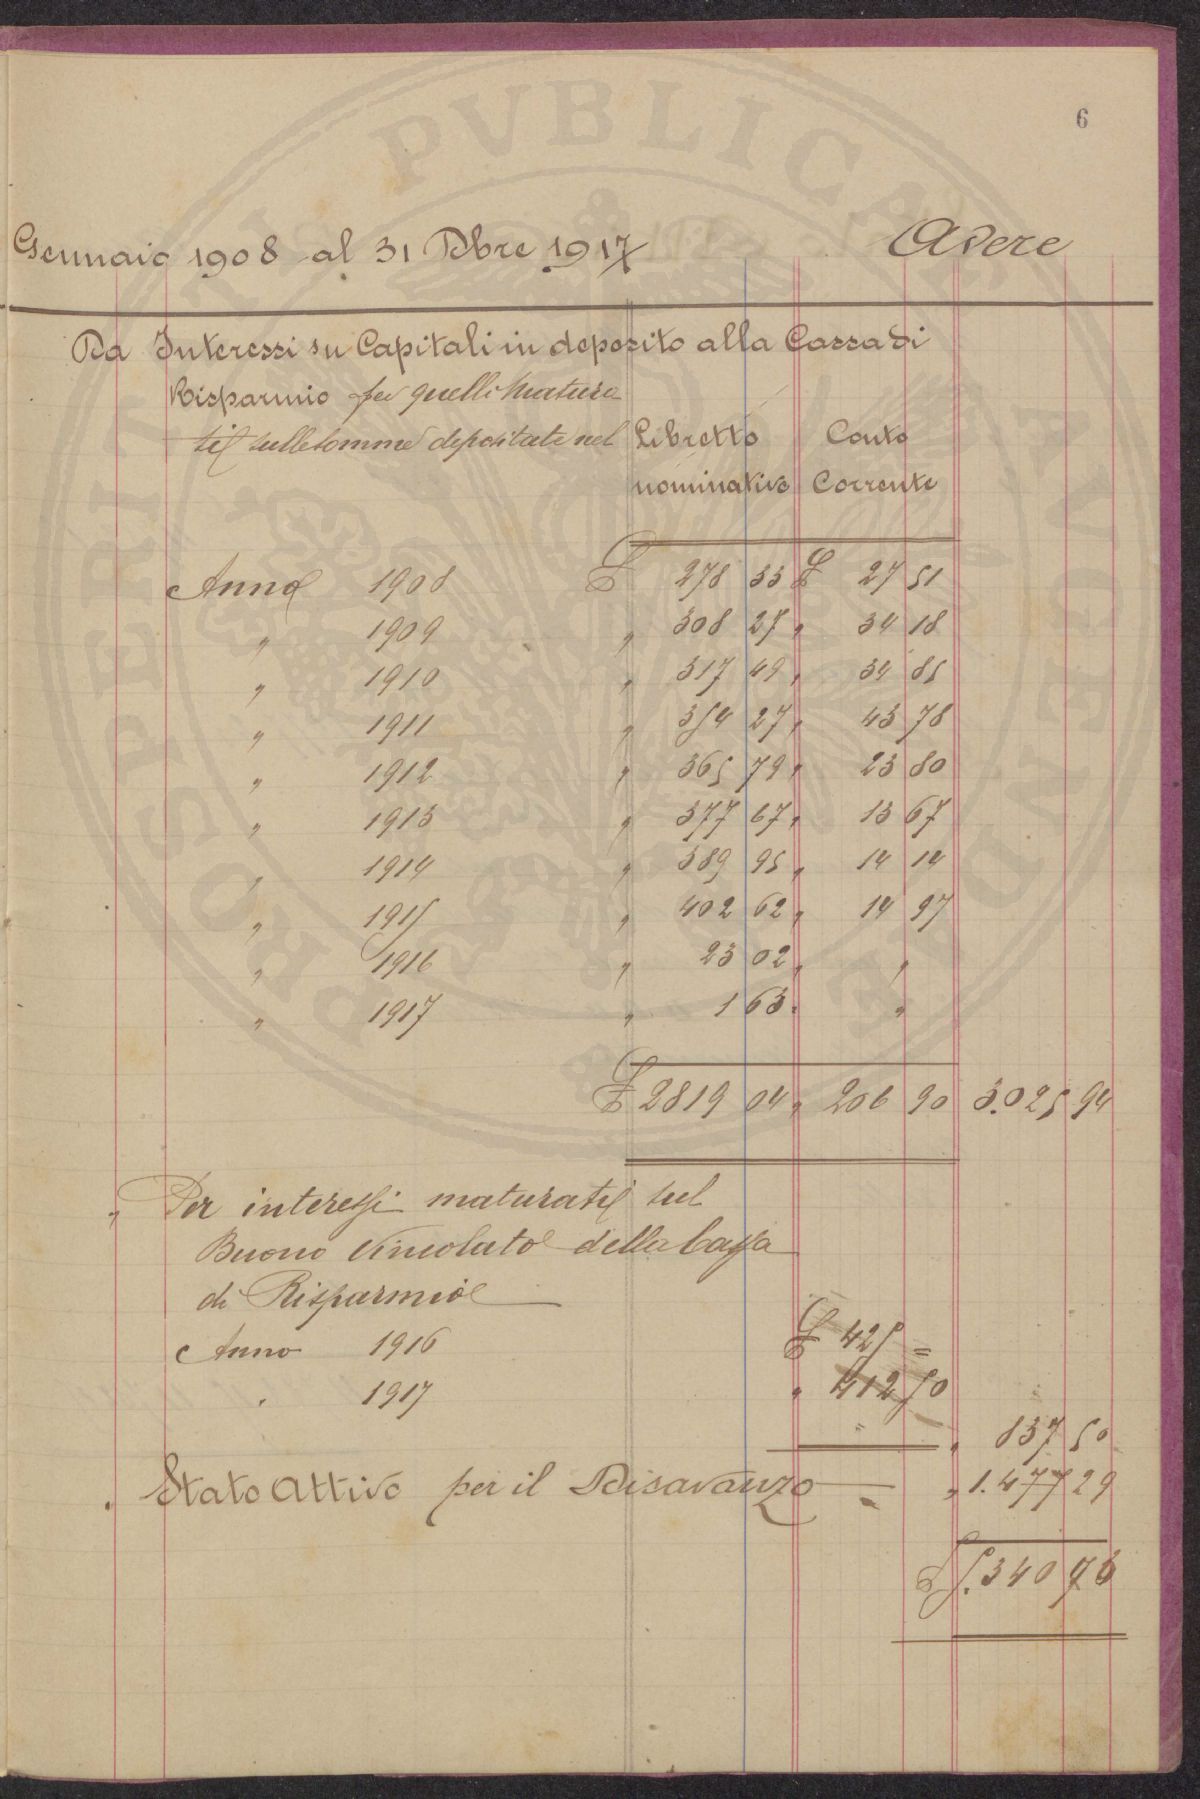 PVBLICAE
6
Gennaio 1908 al 31 Xbre 1917 Avere
Da Interessi su Capitali in deposito alla Cassa di
Risparmio per quelli matura
ti sulle somme depositate nel Libretto Conto
nominativo Corrente
Anno 1908 £ 278 33 £ 27 51
" 1909 " 308 27 " 34 18
" 1910 " 317 49 " 34 85
" 1911 " 354 27 " 43 78
" 1912 " 365 79 " 23 80
" 1913 " 377 67 " 13 67
" 1914 " 389 95 " 14 14
" 1915 " 402 62 " 14 97
" 1916 " 23 02 " "
" 1917 " 1 63 " "
£ 2819 04 " 206 90 3.025 94
" Per interessi maturati sul
Buono vincolato della Cassa
di Risparmio
Anno 1916 £ 425 =
" 1917 " 412 50
" 837 50
" Stato Attivo per il Disavanzo — " 1.477 29
£ 5.340 73